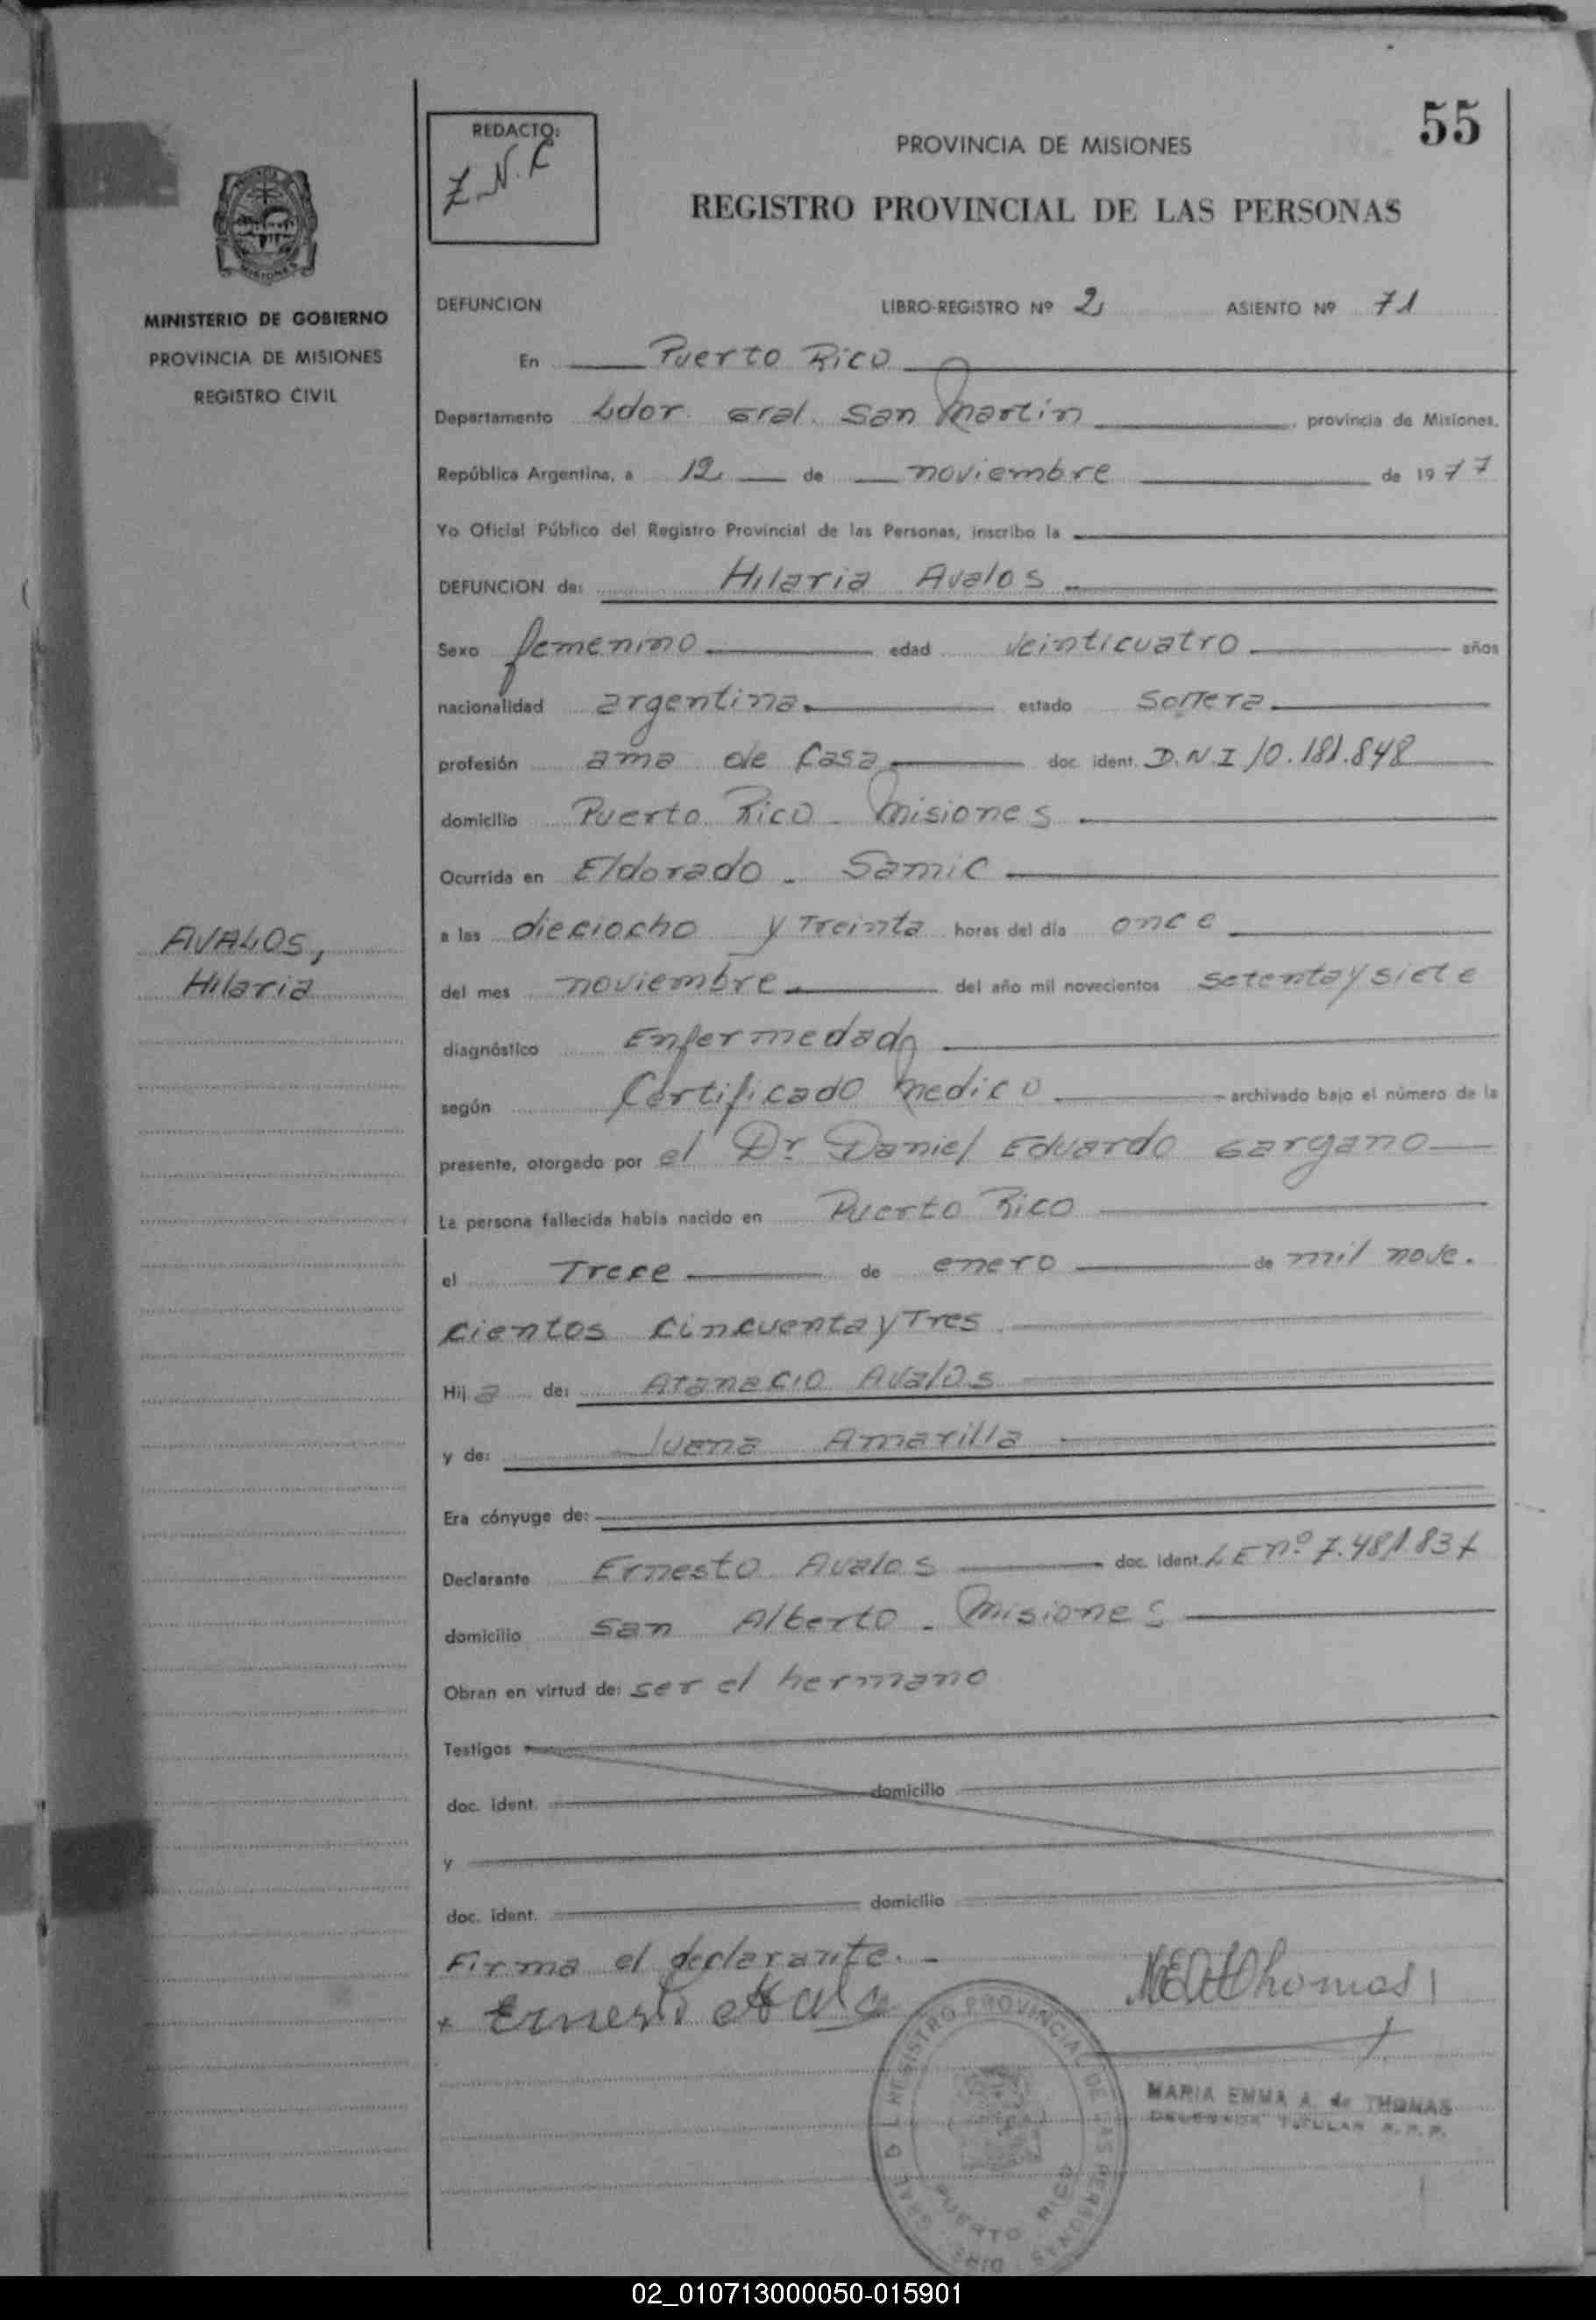 55
REDACTO:
Z.N.C
PROVINCIA DE MISIONES
REGISTRO PROVINCIAL DE LAS PERSONAS
MISIONES
MINISTERIO DE GOBIERNO
PROVINCIA DE MISIONES
REGISTRO CIVIL
DEFUNCION LIBRO-REGISTRO Nº 2 ASIENTO Nº 71
En Puerto Rico
Departamento Ldor. Gral. San Martin provincia de Misiones.
República Argentina, a 12 de noviembre de 1977
Yo Oficial Público del Registro Provincial de las Personas, inscribo la
DEFUNCION de: Hilaria Avalos
Sexo femenino edad veinticuatro años
nacionalidad argentina estado soltera
profesión ama de casa doc. ident. D.N.I 10.181.848
domicilio Puerto Rico - Misiones
Ocurrida en Eldorado - Samic
a las dieciocho y treinta horas del día once
del mes noviembre del año mil novecientos setenta y siete
diagnóstico Enfermedad
según Certificado medico archivado bajo el número de la
presente, otorgado por el Dr Daniel Eduardo Gargano
La persona fallecida había nacido en Puerto Rico
el Trece de enero de mil nove.
cientos cincuenta y Tres
Hija de: Atanacio Avalos
y de: Juana Amarilla
Era cónyuge de:
Declarante Ernesto Avalos doc. ident. LE nº 7.481.837
domicilio San Alberto - Misiones
Obran en virtud de: ser el hermano
Testigos
doc. ident. domicilio
y
doc. ident. domicilio
Firma el declarante. -
AVALOS,
Hilaria
REGISTRO PROVINCIAL DE LAS PERSONAS
PUERTO RICO
MARIA EMMA A. de THOMAS
DELEGADA TITULAR R.P.P.
02_010713000050-015901